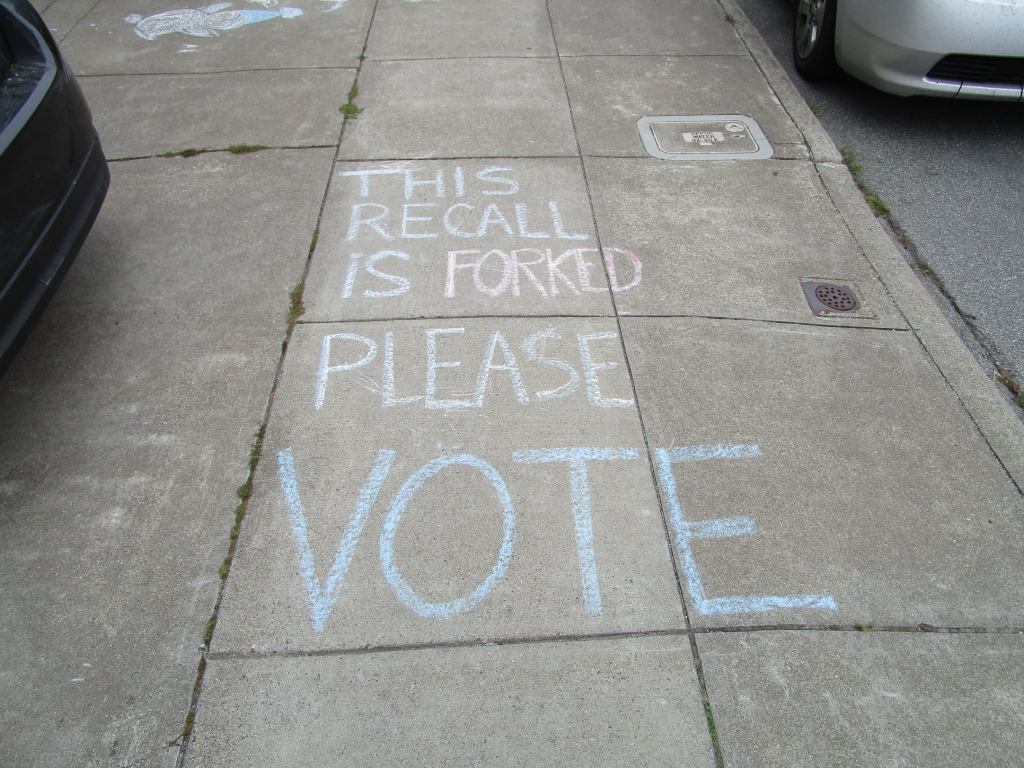 THIS
RECALL
IS FORKED
PLEASE
VOTE